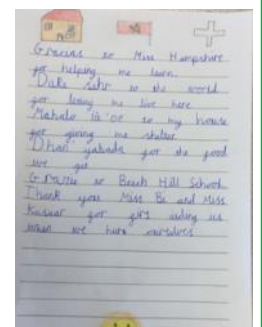 Gracias to Miss Hampshire
for helping me learn.
Duke sehr to the world
for letting me live here
Mahalo ia 'oe to my house
for giving me shelter
Dhan'yabada for the food
we get
Grazie to Beach Hill School
Thank you Miss Be and Miss
Kusar for first aiding us
when we hurt ourselves